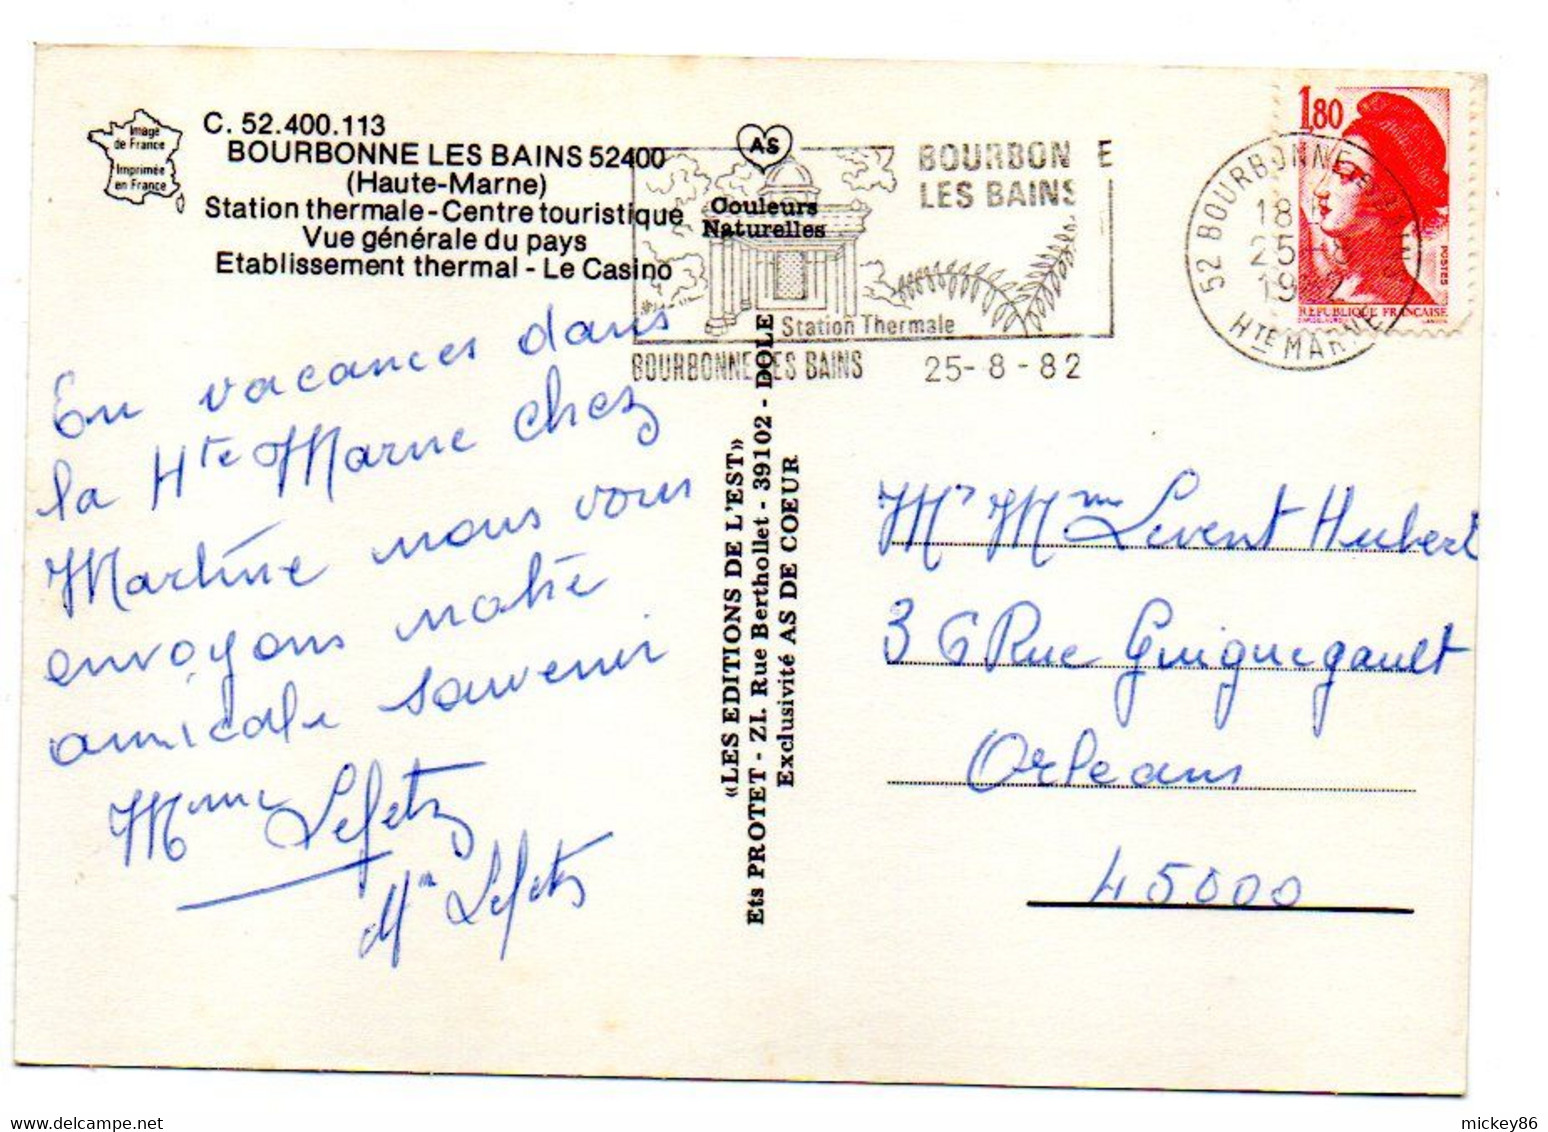 Image
de France
Imprimée
en France
C. 52.400.113
BOURBONNE LES BAINS 52400
(Haute-Marne)
Station thermale - Centre touristique
Vue générale du pays
Etablissement thermal - Le Casino
AS
Couleurs
Naturelles
BOURBON E
LES BAINS
Station Thermale
BOURBONNE LES BAINS 25-8-82
52 BOURBONNE
18
25
19
HTE MARNE
1,80
POSTES
REPUBLIQUE FRANÇAISE
En vacances dans
la Hte Marne chez
Martine nous vous
envoyons notre
amicale souvenir
Mme Lefetz
Mr Lefetz
«LES EDITIONS DE L'EST»
Ets PROTET - ZI. Rue Berthollet - 39102 - DOLE
Exclusivité AS DE COEUR
Mr Mme Levent Hubert
36 Rue Guiguegault
Orleans
45000
mickey86